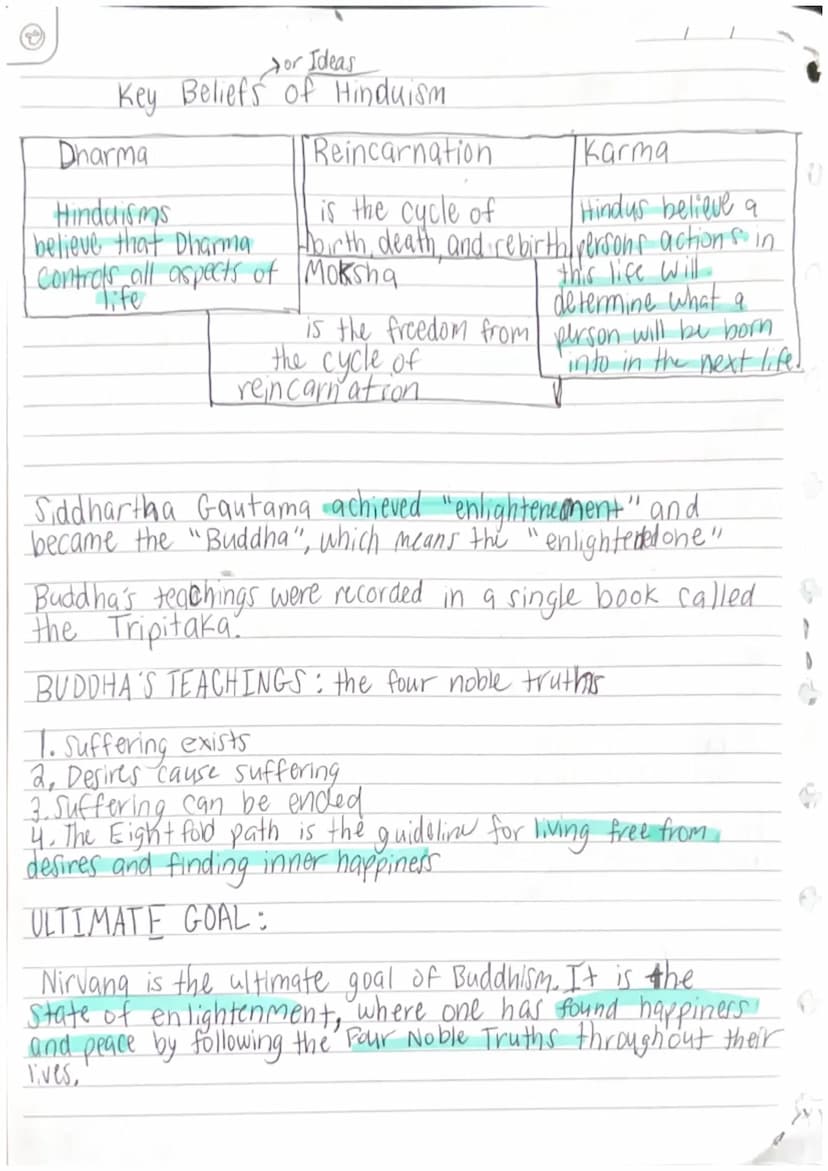 →or Ideas
Key Beliefs of Hinduism
Dharma
Hinduisms
believe that Dharma
controls all aspects of
life
Reincarnation
is the cycle of
birth, death, and rebirth
Moksha
is the freedom from
the cycle of
reincarnation
Karma
Hindus believe a
persons actions in
this life will
determine what a
person will be born
into in the next life.
Siddhartha Gautama achieved "enlightenement" and
became the "Buddha", which means the "enlightened one"
Buddha's teachings were recorded in a single book called
the Tripitaka.
BUDDHA'S TEACHINGS: the four noble truths
1. Suffering exists
2, Desires cause suffering
3. Suffering can be ended
4. The Eightfold path is the guideline for living free from
desires and finding inner happiness
ULTIMATE GOAL:
Nirvana is the ultimate goal of Buddhism. It is the
State of enlightenment, where one has found happiness
and peace by following the Four Noble Truths throughout their
lives,